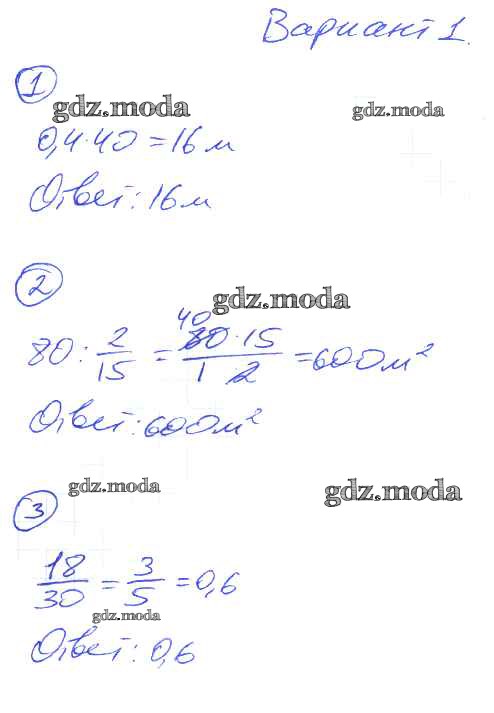 Вариант 1.
1
gdz.moda gdz.moda
0,4·40=16м
Ответ: 16м
2
gdz.moda
40
80 : 2/15 = 80·15/1 2 = 600м²
Ответ: 600м²
gdz.moda
gdz.moda
3
18/30 = 3/5 = 0,6
gdz.moda
Ответ: 0,6